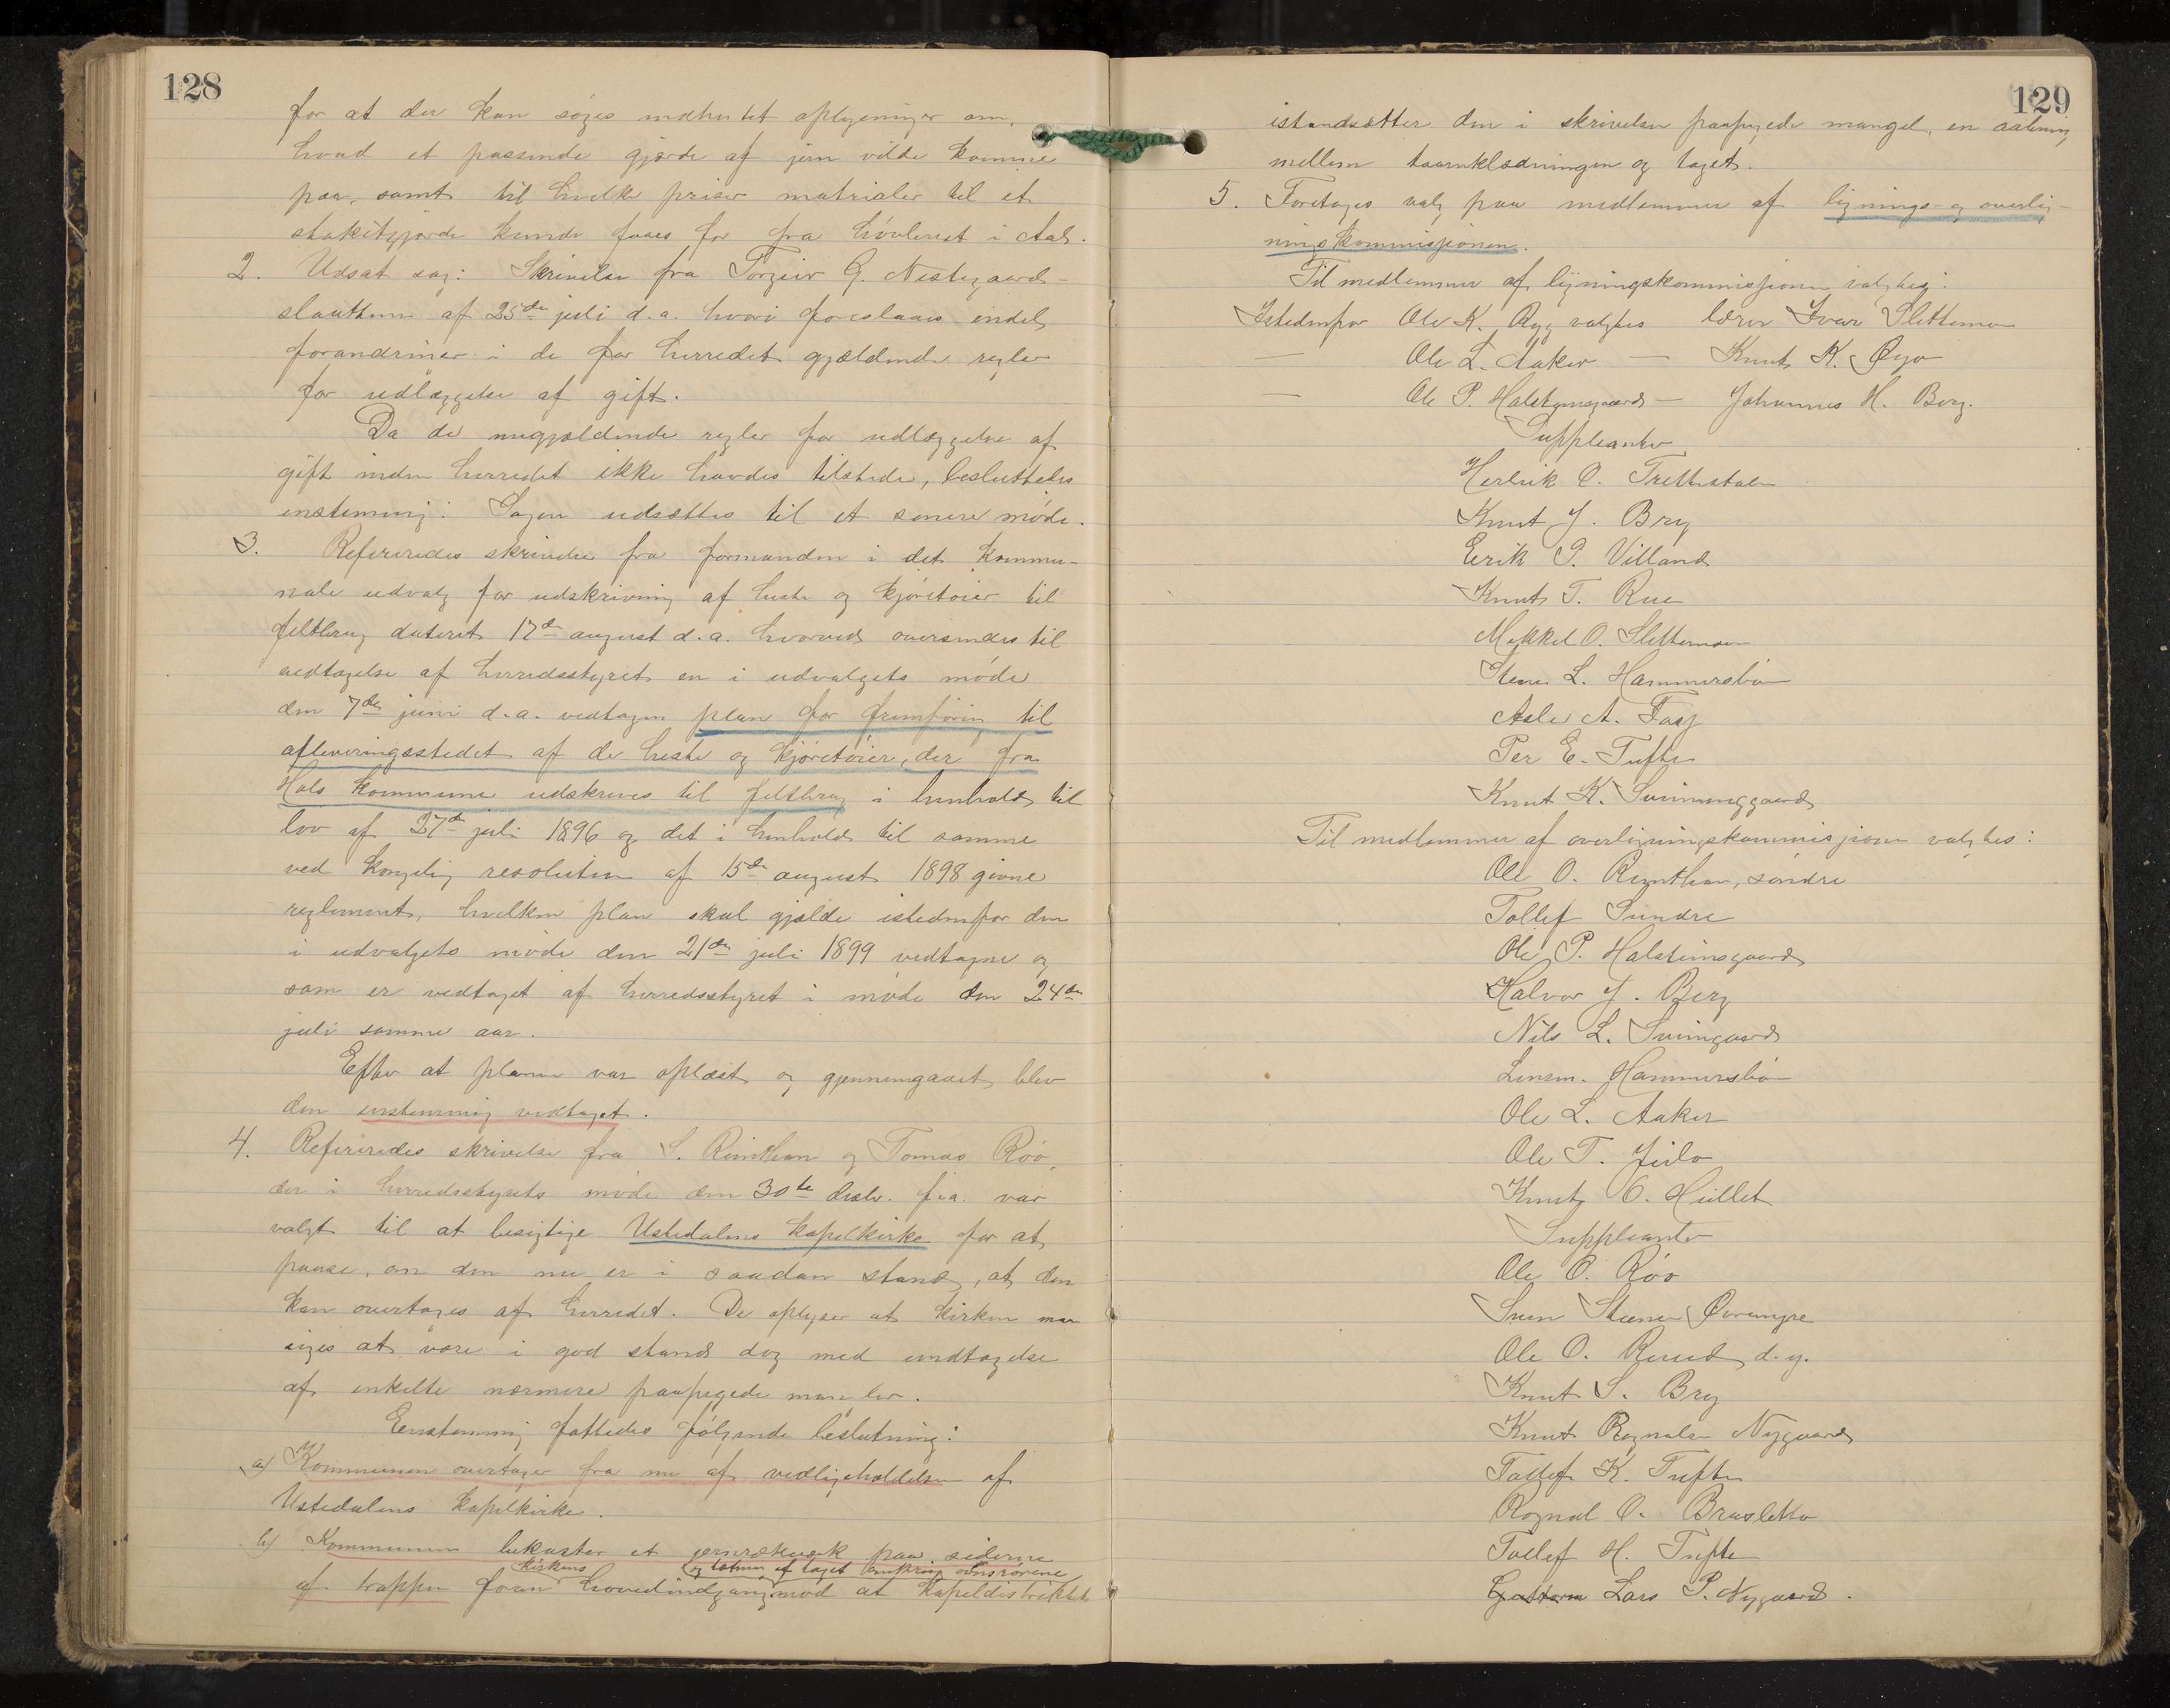 128
for at der kan søges indhentet oplysninger om,
hvad et passende gjærde af jern vilde komme
paa, samt til hvilke priser materialer til et
stakitgjærde kunde faaes for fra høvleriet i Aal.
2. Udsat sag: Skrivelse fra Torgeir G. Nestegaard-
slaatten af 25de juli d.a. hvori foreslaaes endel
forandringer i de for herredet gjældende regler
for udlæggelse af gift.
Da de nugjældende regler for udlæggelse af
gift inden herredet ikke havdes tilstede, besluttedes
enstemmig: Sagen udsættes til et senere møde.
3. Refereredes skrivelse fra formanden i det kommu-
nale udvalg for udskrivning af heste og kjøretøier til
feltbrug dateret 12de august d.a. hvorved oversendes til
vedtagelse af herredsstyret en i udvalgets møde
den 7de juni d.a. vedtagen plan for fremføring til
afleveringsstedet af de heste og kjøretøier, der fra
Hols kommune udskrives til feltbrug i henhold til
lov af 27de juli 1896 og det i henhold til samme
ved kongelig resolution af 15de august 1898 givne
reglement, hvilken plan skal gjælde istedenfor den
i udvalgets møde den 21de juli 1899 vedtagne og
som er vedtaget af herredsstyret i møde den 24de
juli samme aar.
Efter at planen var oplæst og gjennemgaaet, blev
den enstemmig vedtaget.
4. Refereredes skrivelse fra S. Reinthon og Tomas Røo,
der i herredsstyrets møde den 30te decbr. f.a. var
valgt til at besigtige Ustedalens kapelkirke for at
paase, om den nu er i saadan stand, at den
kan overtages af herredet. De oplyser at kirken maa
siges at være i god stand dog med undtagelse
af enkelte nærmere paapegede mangler.
Enstemmig fattedes følgende beslutning:
a) Kommunen overtager fra nu af vedligeholdelsen af
Ustedalens kapelkirke.
b) Kommunen bekoster et jernrækværk paa siderne
kirkens og tætning af taget omkring ovnsrørene
af trappen foran hovedindgang mod at kapeldistriktet
129
istandsætter den i skrivelsen paapegede mangel, en aabning
mellem taarnklædningen og taget.
5. Foretages valg paa medlemmer af lignings- og overlig-
ningskommissionen.
Til medlemmer af ligningskommissionen valgtes:
Istedenfor Ole K. Ryg valgtes lærer Ivar Slettemoen
— Ole L. Aaker — Knut K. Øyo
— Ole P. Halsteinsgaard — Johannes H. Berg.
Suppleanter
Herbrik O. Trettestøl
Knut J. Bry
Eerik P. Villand
Knut T. Rue
Mekkel O. Slettemoen
Steen L. Hammersbøen
Asle A. Foss
Per E. Tufte
Knut K. Sveinunggaard
Til medlemmer af overligningskommissionen valgtes:
Ole O. Reinthon, søndre
Tollef Sundre
Ole P. Halsteinsgaard
Halvor J. Berg
Nils L. Sveingaard
Lensm. Hammersbøen
Ole L. Aaker
Ole T. Jeilo
Knut O. Hullet
Suppleanter
Ole O. Røo
Sven Steensen Øvrengre
Ole O. Ruud d.y.
Knut S. Bry
Knut Ragnalsen Nygaard
Tollef K. Tufte
Ragnal O. Brusletto
Tollef H. Tufte
Lars P. Nygaard.